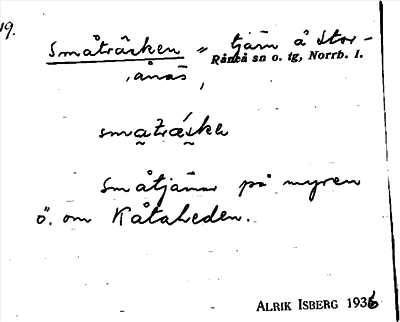 19.
Småträsken " tjärn å Stor-
Råneå sn o. tg, Norrb. l.
ånäs
smaträskə
Småtjärnar på myren
ö. om Kåtaheden.
ALRIK ISBERG 1936